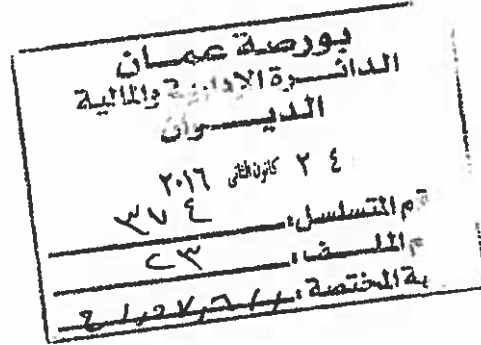 بورصة عمـــان
الدائـــرة الادارية والمالية
الديـــوان
٢٤ كانون الثاني ٢٠١٦
قم التسلسل: ٣٧٤
الملـــف: ٢٣
المختصة: